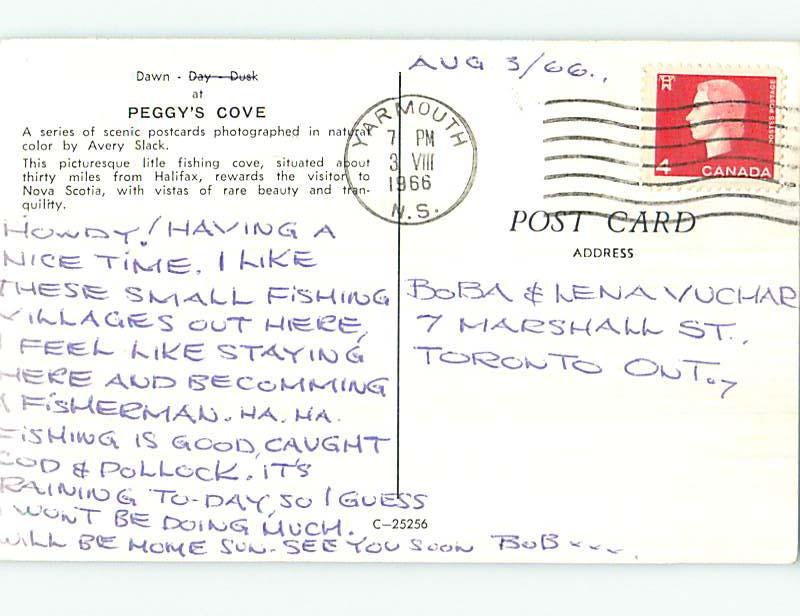 Dawn - Day - Dusk
at
PEGGY'S COVE
A series of scenic postcards photographed in natural
color by Avery Slack.
This picturesque litle fishing cove, situated about
thirty miles from Halifax, rewards the visitor to
Nova Scotia, with vistas of rare beauty and tran-
quility.
HOWDY! HAVING A
NICE TIME. I LIKE
THESE SMALL FISHING
VILLAGES OUT HERE,
I FEEL LIKE STAYING
HERE AND BECOMMING
A FISHERMAN. HA. HA.
FISHING IS GOOD, CAUGHT
COD & POLLOCK. IT'S
RAINING TO-DAY, SO I GUESS
I WON'T BE DOING MUCH.
WILL BE HOME SUN. SEE YOU SOON BOB xxx.
C-25256
AUG 3/66.,
YARMOUTH
7 PM
3 VIII
1966
N.S.
POSTES POSTAGE
4 CANADA
POST CARD
ADDRESS
BOBA & LENA VUCHAR
7 MARSHALL ST.,
TORONTO ONT. 7